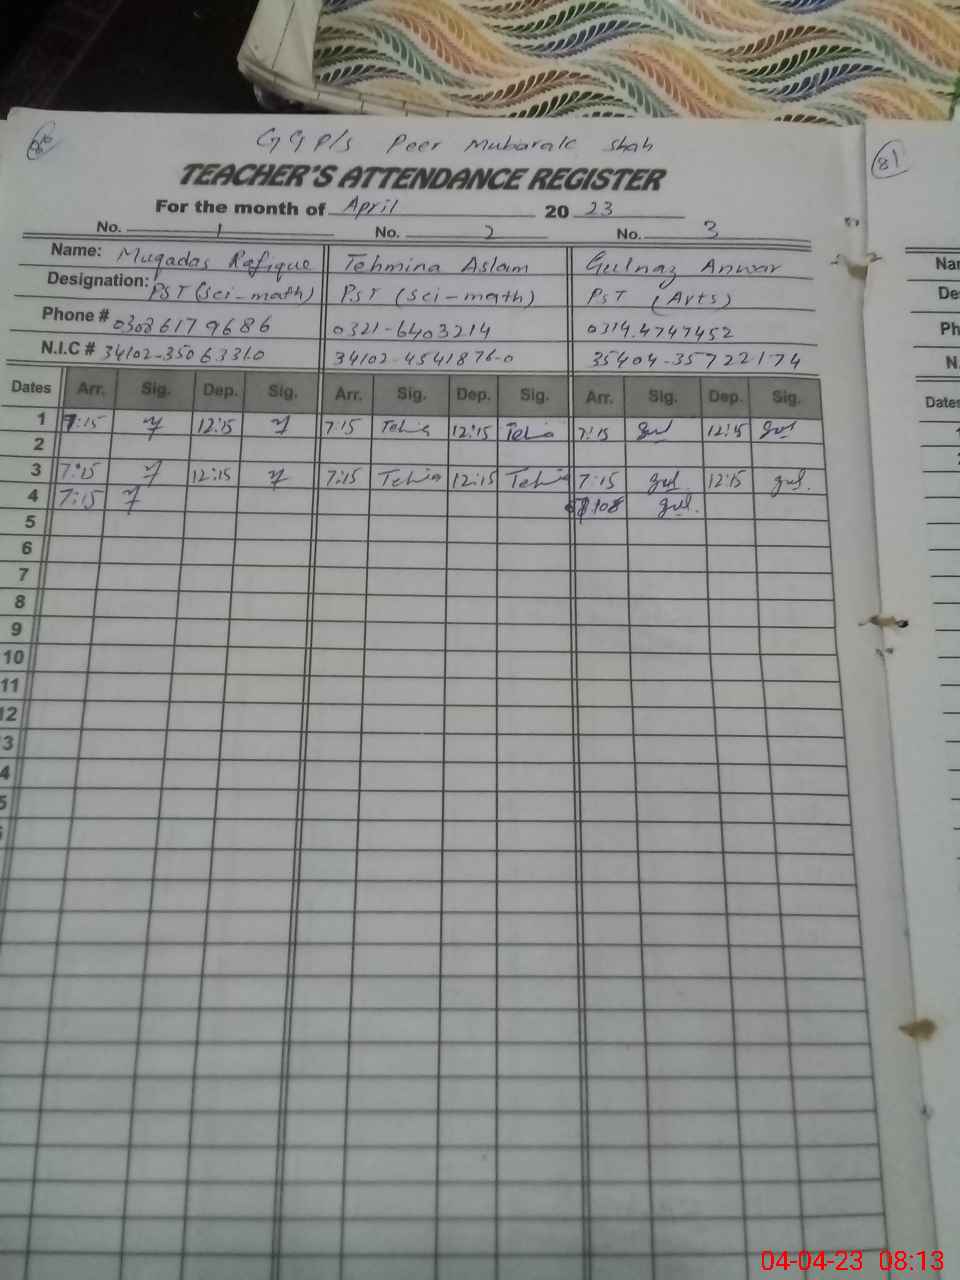 80
GGP/s Peer Mubarak Shah
81
TEACHER'S ATTENDANCE REGISTER
For the month of April 20 23
No. 1 No. 2 No. 3
Name: Muqadas Rafique Tehmina Aslam Gulnaz Anwar
Designation: PST (Sci-math) PST (Sci-math) PST (Arts)
Phone # 03086179686 0321-6403214 0314.4747452
N.I.C # 34102-35063310 34102-4541876-0 35404-35722174
Dates Arr. Sig. Dep. Sig. Arr. Sig. Dep. Sig. Arr. Sig. Dep. Sig.
1 7:15 12:15 7:15 12:15 7:15 gul 12:15 gul
2
3 7:15 12:15 7:15 12:15 7:15 gul 12:15 gul.
4 7:15 gul.
5
6
7
8
9
10
11
12
3
4
5
Nam
De
Ph
N.
Dates
04-04-23 08:13